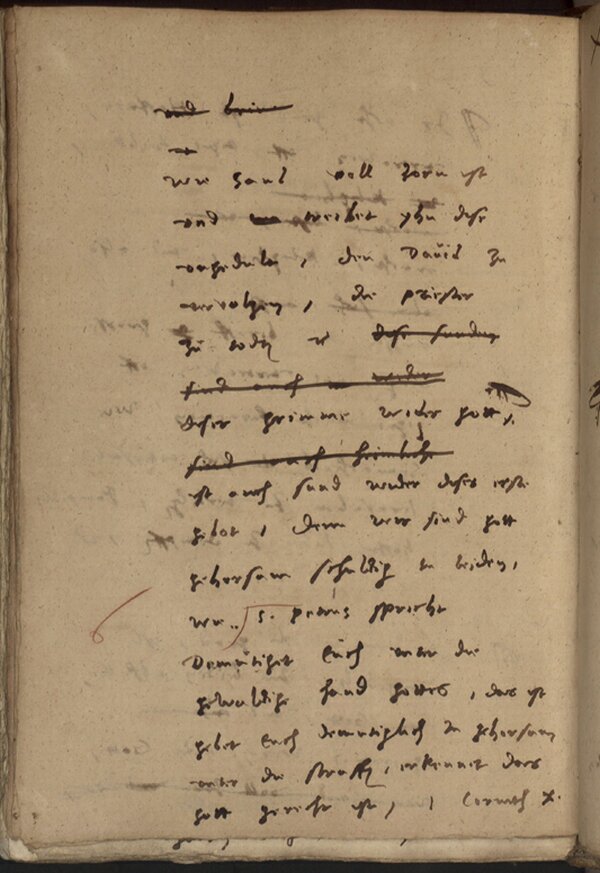 und
wie Saul voll zorn ist
und treibet yhn dise
ungedult, den David zu
vervolgen, die priester
zu todten
diser grimme wider gott,
ist auch sund wider dises erste
gebot, denn wir sind gott
gehorsam schuldig in leiden,
wie S. Petrus spricht
Demütiget Euch unter die
gewaldige hand gottes, das ist
gebet Euch demutiglich in gehorsam
unter die straff, erkennet das
gott gerecht ist, 1 Corinth X.